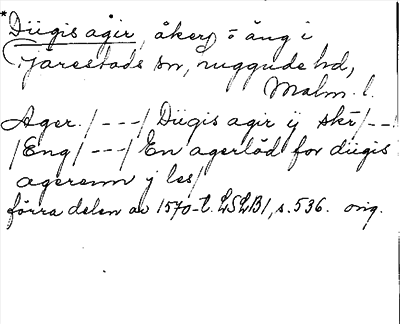 *Diigis agir, åker o äng i
Järestads sn, ruggude hd,
Malm. l.
Ager. /---/ Diigis agir ij skr /--
/Eng/ ---/ En agerlöd for diigis
agerenn j les/
förra delen av 1570-t. LSLB1, s. 536. orig.